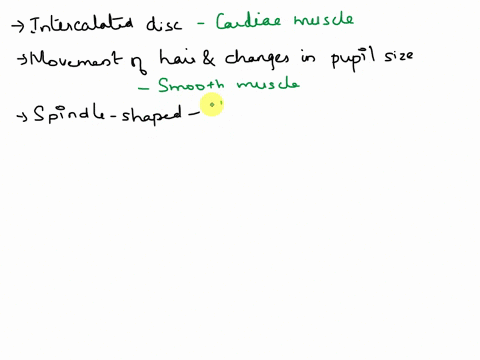 → Intercalated disc - Cardiac muscle
→ Movement of hair & changes in pupil size
- Smooth muscle
→ Spindle-shaped -